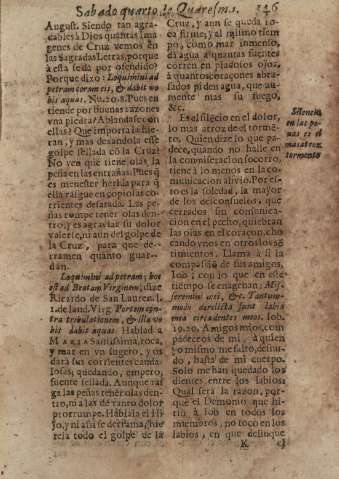 Sabado quarto de Quaresma.
146
August. Siendo tan agra-
dables à Dios quantas Ima
genes de Cruz vemos en
las Sagradas Letras, porque
à esta se da por ofendido?
Porque dixo: Loquimini ad
petram coram eis, & dabit vo
bis aquas. Nu. 20. 8. Pues en
tiene por buenas razones
vna piedra? Ablandase con
ellas? Que importa la hie-
ran, y mas dandola este
golpe sellada cō la Cruz?
No ven que tiene olas la
peña en las entrañas? Pues q̄
es menester herirla para q̄
ella rasgue en copiosas co-
rrientes desatada. Las pe-
ñas rompe tener olas den-
tro, y es agraviar su dolor
valerse, ni aun del golpe de
la Cruz, para que de-
rramen quanto guar-
dan.
Loquimini ad petram; hoc
est ad Beatam Virginem, dize
Ricardo de San Lauren. l.
1. de laud. Virg. Fortem con-
tra tribulationem, & illa vo
bis dabit aquas. Hablad à
MARIA Santissima, roca,
y mar en vn sugeto, y os
dará sus corrientes cauda-
losas, quedando, empero,
fuente sellada. Aunque ras-
ga las peñas tener olas den-
tro, ni à las de tanto dolor
prorrumpe. Hablala el Hi-
jo, y ni assi se derrama, hie
rela todo el golpe de la
Cruz, y aun se queda ro-
ca firme, y al mismo tiem-
po, como mar inmenso,
dà agua à quantas fuentes
corren en piadosos ojos,
à quantos coraçones abra-
sados piden agua, que au-
mente mas su fuego,
&c.
Es el silencio en el dolor,
lo mas atroz de el tormē-
to. Quien dize lo que pa-
dece, quando no halle en
la conmiseracion socorro,
tiene à lo menos en la co-
municacion alivio. Por es-
to es la soledad, la mayor
de los desconsuelos, que
cerradas sin comunica-
cion en el pecho, quiebran
las olas en el coraçon, cho
cando vnos en otros los sē
timientos. Llama à sì la
compassion de sus amigos,
Iob; con lo que en este
tiempo se enagenan: Mi-
seremini mei, &c. Tantum-
modo derelicta sunt labia
mea circa dentes meos. Iob.
19. 20. Amigos mios, com
padeceos de mi, à quien
yo mismo me falto, desnu-
do, hasta de mi cuerpo.
Solo me han quedado los
dientes entre los labios.
Qual serà la razon, por-
que el Demonio que hi-
riò à Iob en todos los
miembros, no toco en los
labios, en que delinque
Silencio
en las pe
nas es el
mas atroz
tormento
K
el